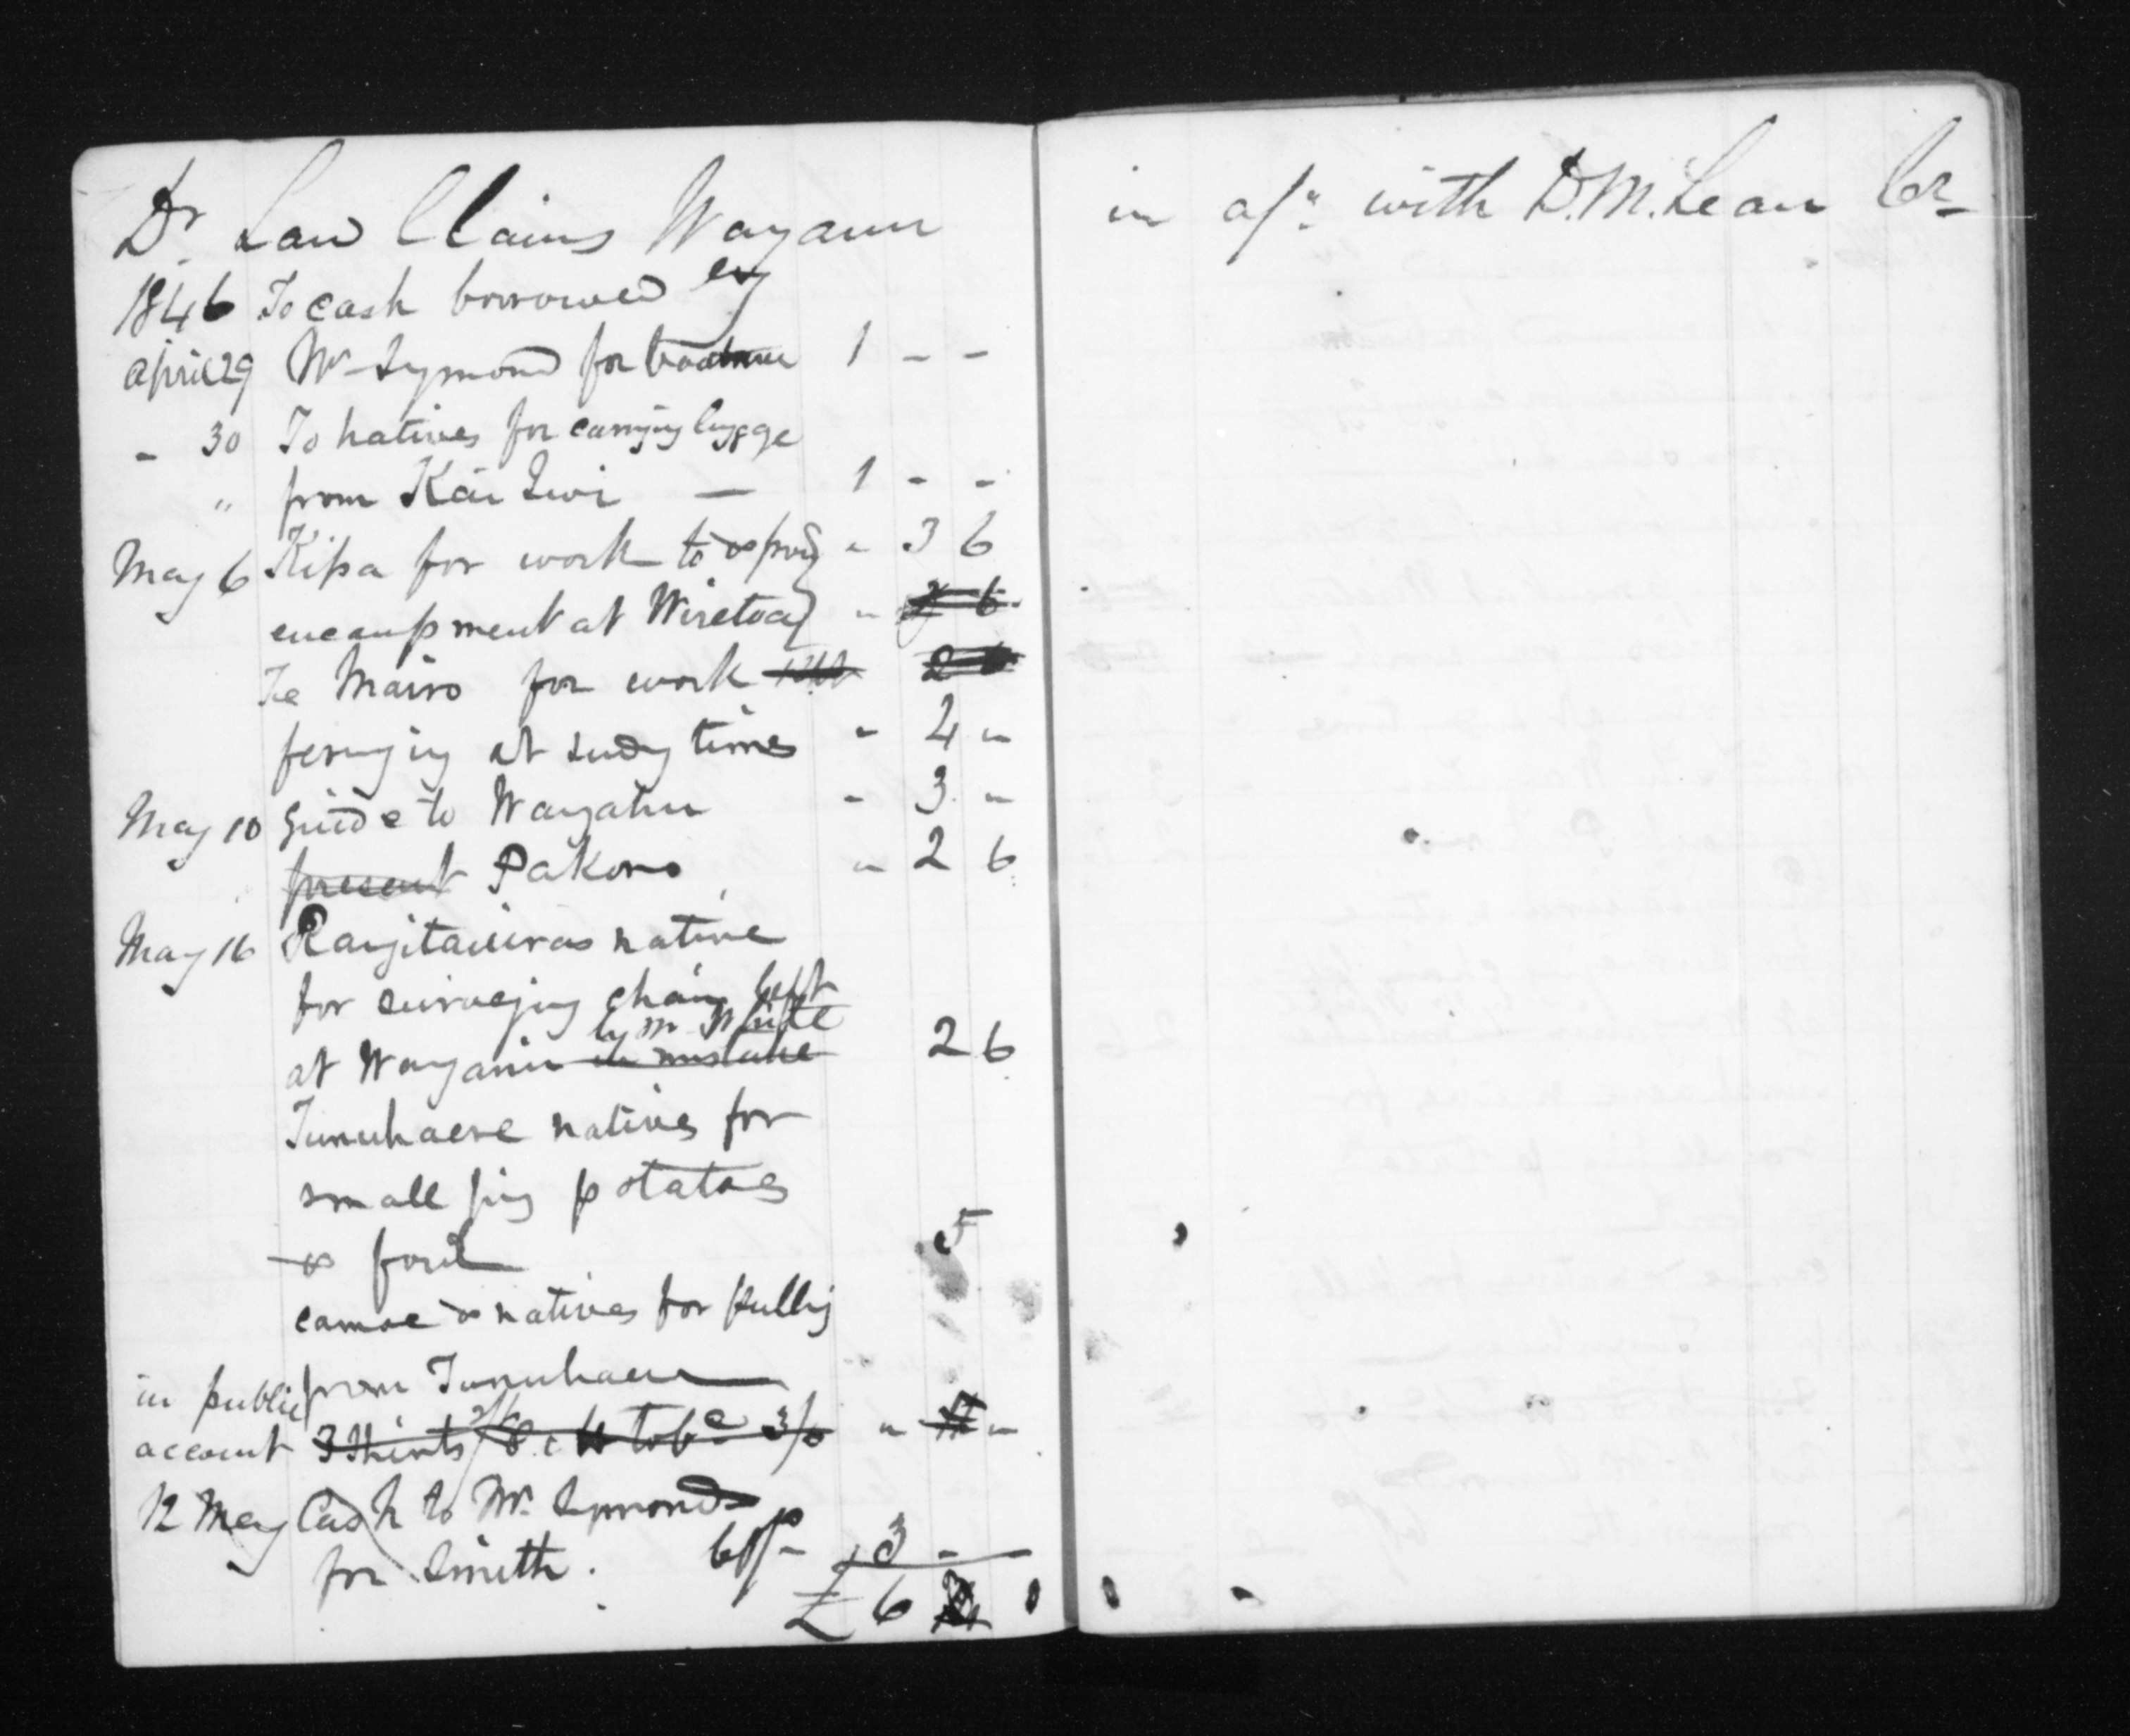 Dr. Land Claims Wanganui
1846 To cash borrowed by
April 29 Mr Symond for 1 - -
" 30 To natives for carrying luggge
" from Kai Iwi — 1 - -
May 6 Kipa for work to & from " 3 6
encampment at Wiretoa "
Te Mairo for work
ferrying at sundry times " 4 "
May 10 Guide to Wangahu - 3 "
present Pakoro " 2 6
May 16 Rangitauiras native
for surveying chain left
by Mr White
at Wanganui in mistake 2 6
Tunuhaere natives for
small pig potatoes
& fowl 5
canoe & natives for pulling
in public from Tunuhaere
account 3 Shirts tobc 3/6 "
12 May Cash to Mr. Symonds
for Smith. 3 -
£ 6
in a/c with D. McLean Cr